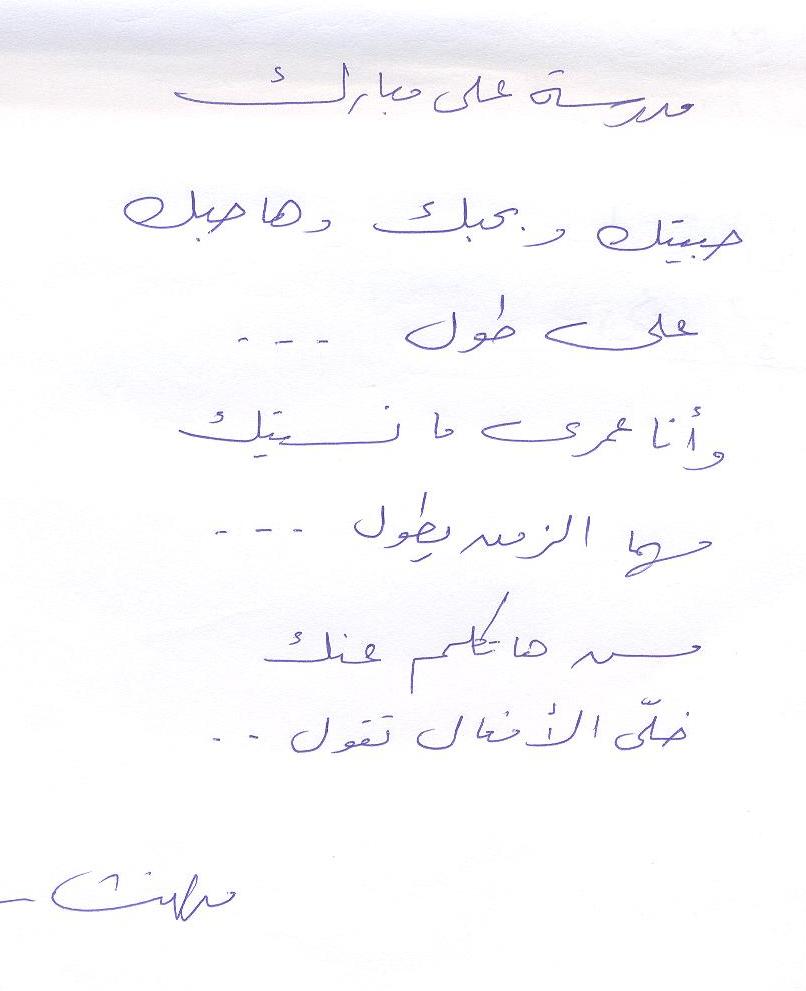 مدرسة على مبارك
حبيتك وبحبك وهاحبك
على طول ...
وأنا عمرى ما نسيتك
مهما الزمن يطول ...
مش هاتكلم عنك
خلّى الأفعال تقول ..